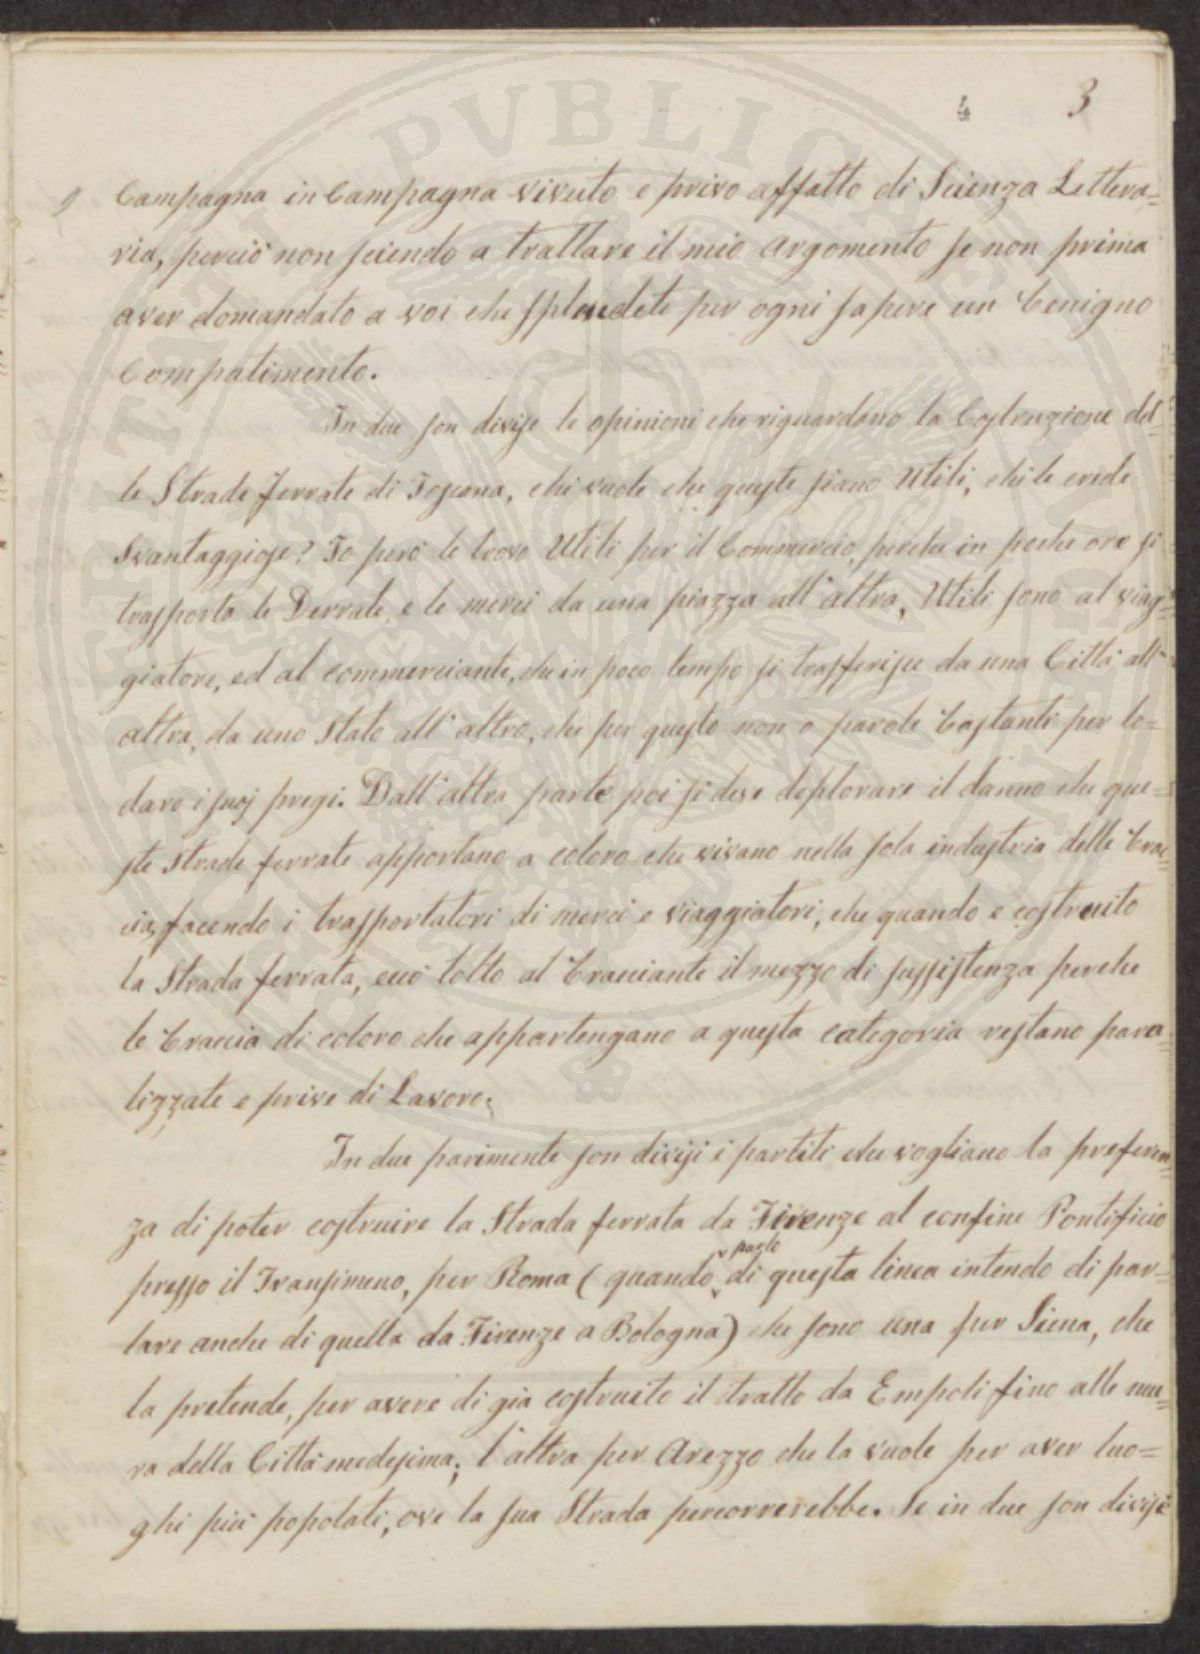 4 3
Campagna in Campagna vivuto e privo affatto di Scienza Lettera=
ria, perciò non sciendo a trattare il mio argomento se non prima
aver domandato a voi che splendete per ogni sapere un benigno
Compatimento.
In due son divise le opinioni che riguardano la Costruzione del=
le Strade Ferrate di Toscana, chi vuole che queste siano Utili, chi le crede
Svantaggiose? Io però le trovo Utili per il Commercio, perche in poche ore si
trasporta le Derrate, e le merci da una piazza all'altra, Utili sono al viag=
giatore, ed al commerciante, che in poco tempo si trasferisce da una Città all'
altra, da uno Stato all'altro, che per questo non o parole bastanti per lo=
dare i suoj pregi. Dall'altra parte poi si deve deplorare il danno che que=
ste strade ferrate apportano a coloro che vivano nella sola industria delle brac=
cia, facendo i trasportatori di merci e viaggiatori, che quando e costruito
la Strada ferrata, ecco tolto al bracciante il mezzo di sussistenza perche
le braccia di coloro che appartengano a questa categoria restano para=
lizzate e prive di Lavoro.
In due parimente son divisi i partiti che vogliano la preferen=
za di poter costruire la Strada ferrata da Firenze al confine Pontificio
parlo
presso il Transimeno, per Roma (quando di questa linea intendo di par=
lare anche di quella da Firenze a Bologna) che sono una per Siena, che
la pretende, per avere di gia costruito il tratto da Empoli fino alle mu=
ra della Città medesima; l'altra per Arezzo che la vuole per aver luo=
ghi più popolati, ove la sua Strada percorrerebbe. Se in due son divisi
PUBLICAE